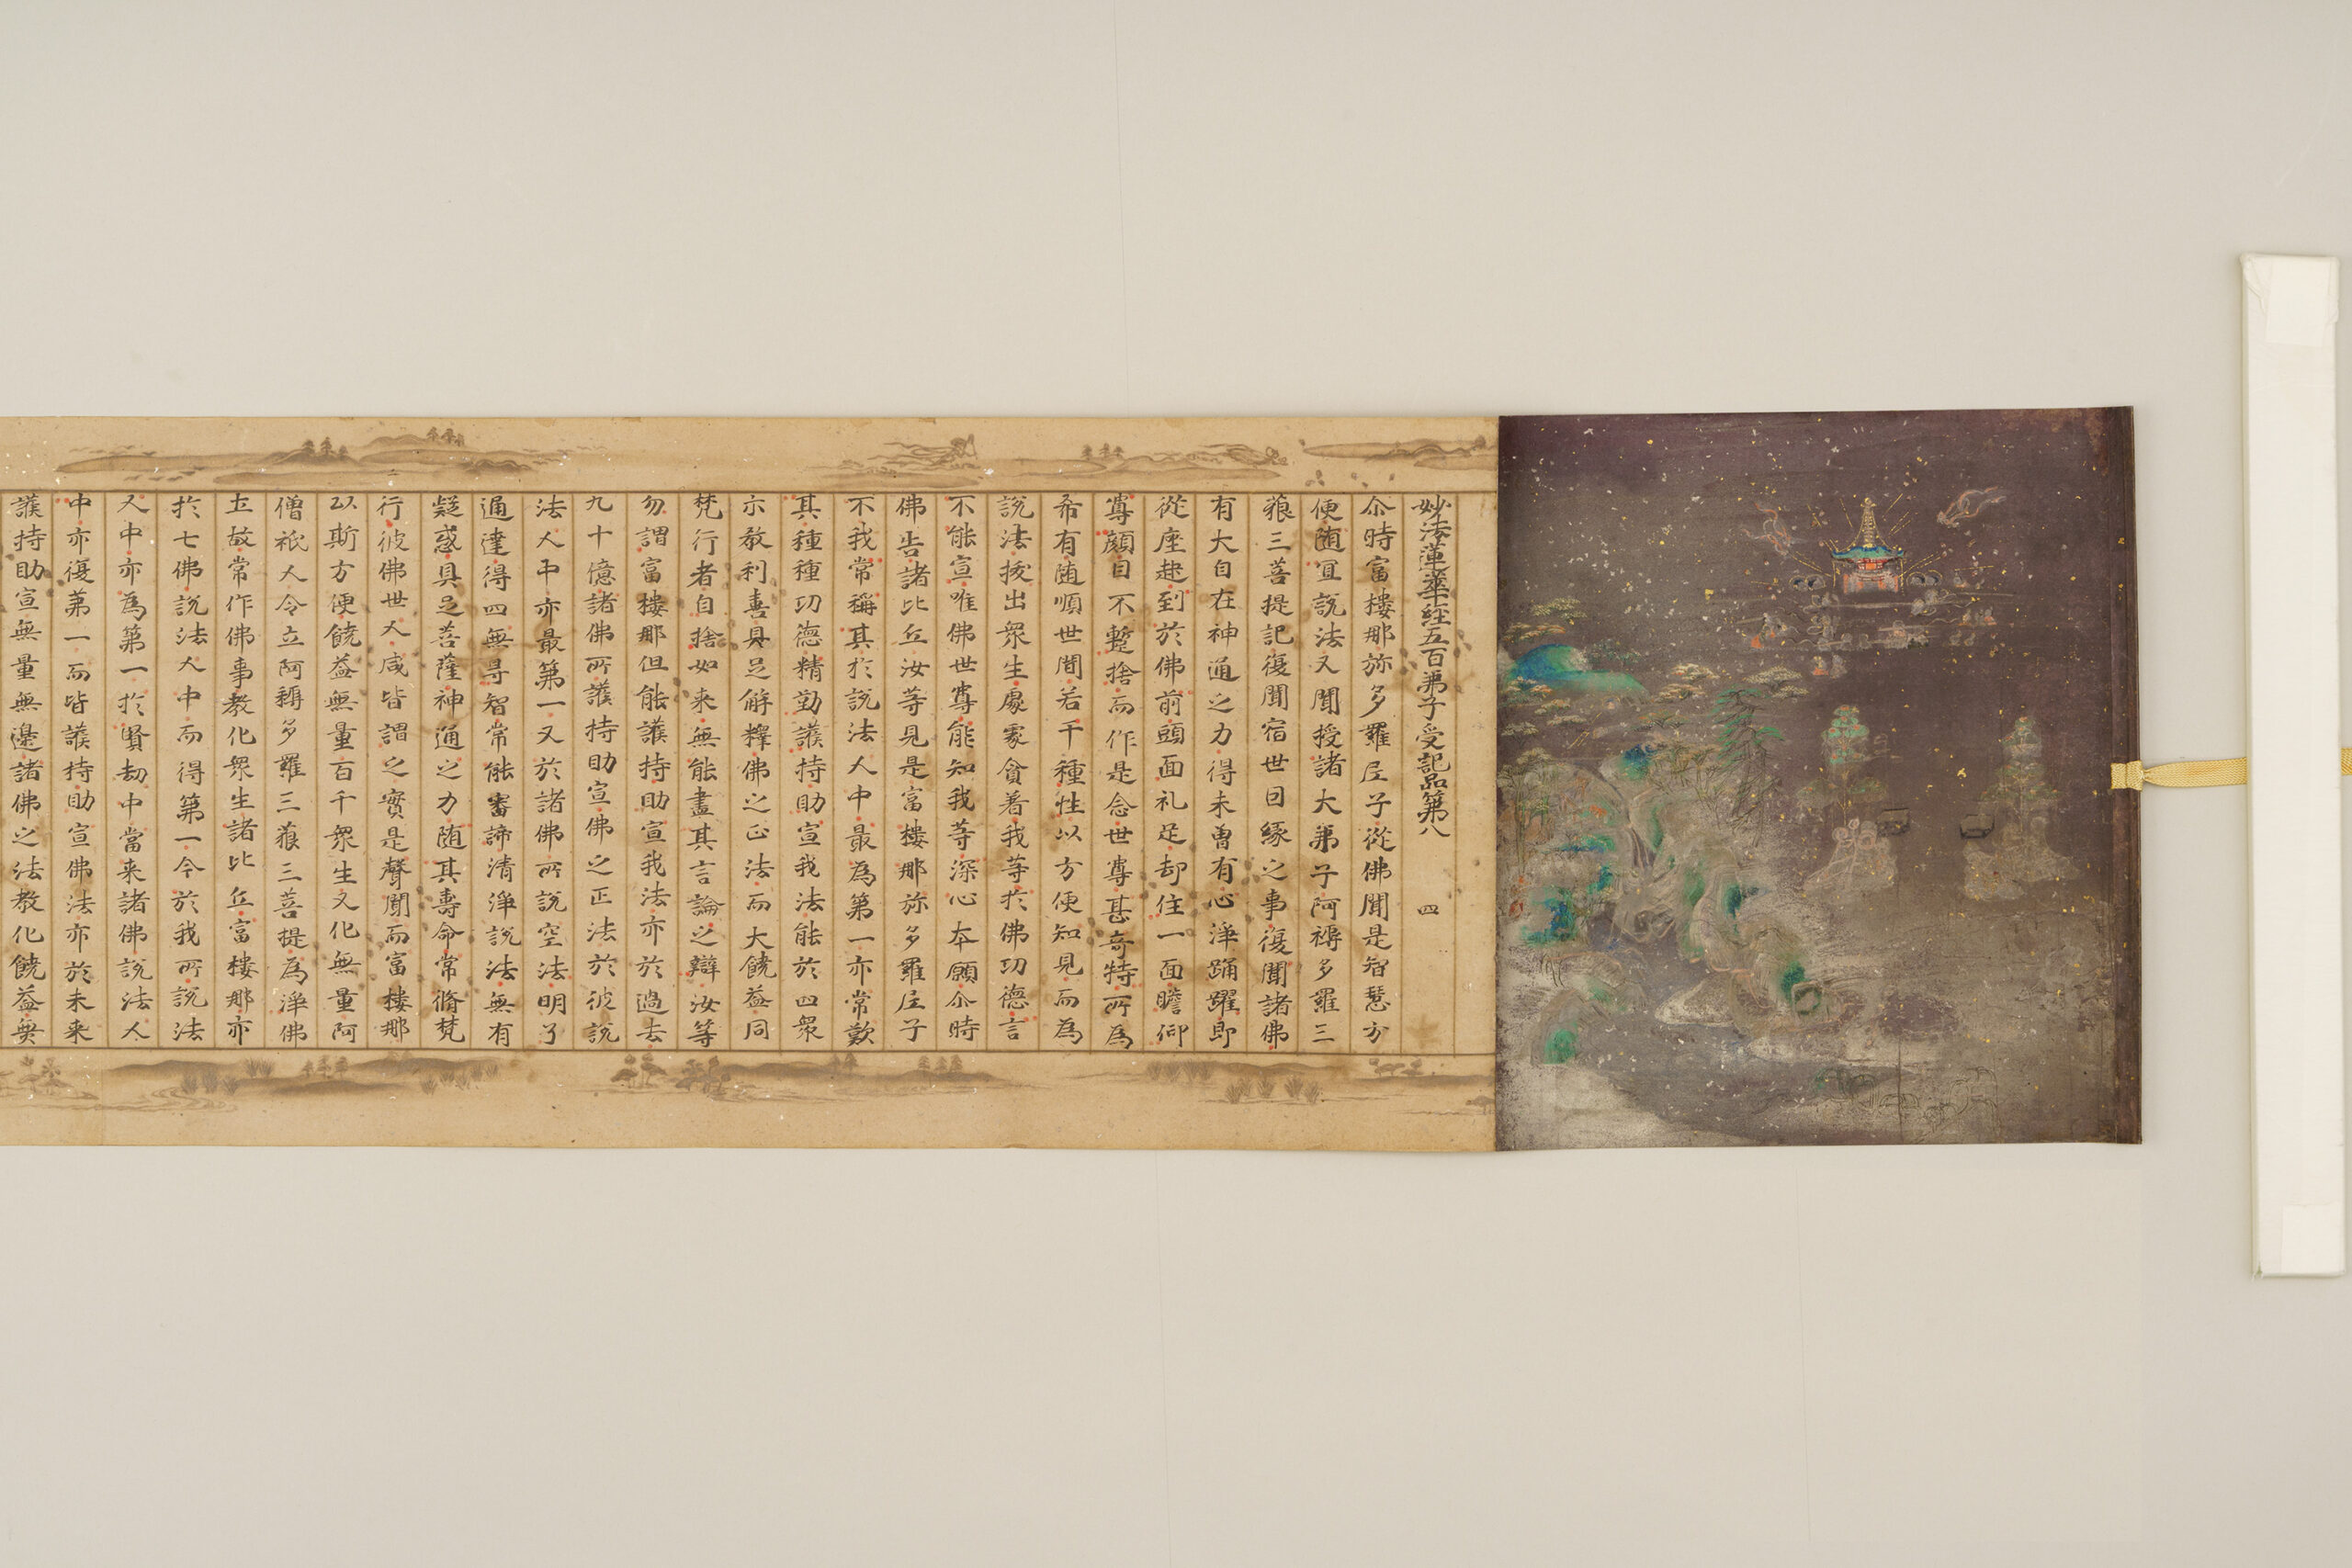 妙法蓮華經五百弟子受記品第八　四
尒時富樓那弥多羅尼子從佛聞是智慧方
便随冝説法又聞授諸大弟子阿耨多羅三
藐三菩提記復聞宿世因緣之事復聞諸佛
有大自在神通之力得未曽有心淨踊躍即
從座起到於佛前頭面礼足却住一面瞻仰
尊顔目不蹔捨而作是念世尊甚奇特所為
希有随順世間若干種性以方便知見而為
説法拔出衆生處處貪著我等於佛功德言
不能宣唯佛世尊能知我等深心本願尒時
佛告諸比丘汝等見是富樓那弥多羅尼子
不我常稱其於説法人中最為第一亦常歎
其種種功德精勤護持助宣我法能於四衆
示教利喜具足解釋佛之正法而大饒益同
梵行者自捨如来無能盡其言論之辯汝等
勿謂富樓那但能護持助宣我法亦於過去
九十億諸佛所護持助宣佛之正法於彼説
法人中亦最第一又於諸佛所説空法明了
通達得四無㝵智常能審諦清淨説法無有
疑惑具足菩薩神通之力随其壽命常脩梵
行彼佛世人咸皆謂之實是聲聞而富樓那
以斯方便饒益無量百千衆生又化無量阿
僧祇人令立阿耨多羅三藐三菩提為淨佛
土故常作佛事教化衆生諸比丘富樓那亦
於七佛説法人中而得第一今於我所説法
人中亦為第一於賢劫中當来諸佛説法人
中亦復第一而皆護持助宣佛法亦於未来
護持助宣無量無邊諸佛之法教化饒益無